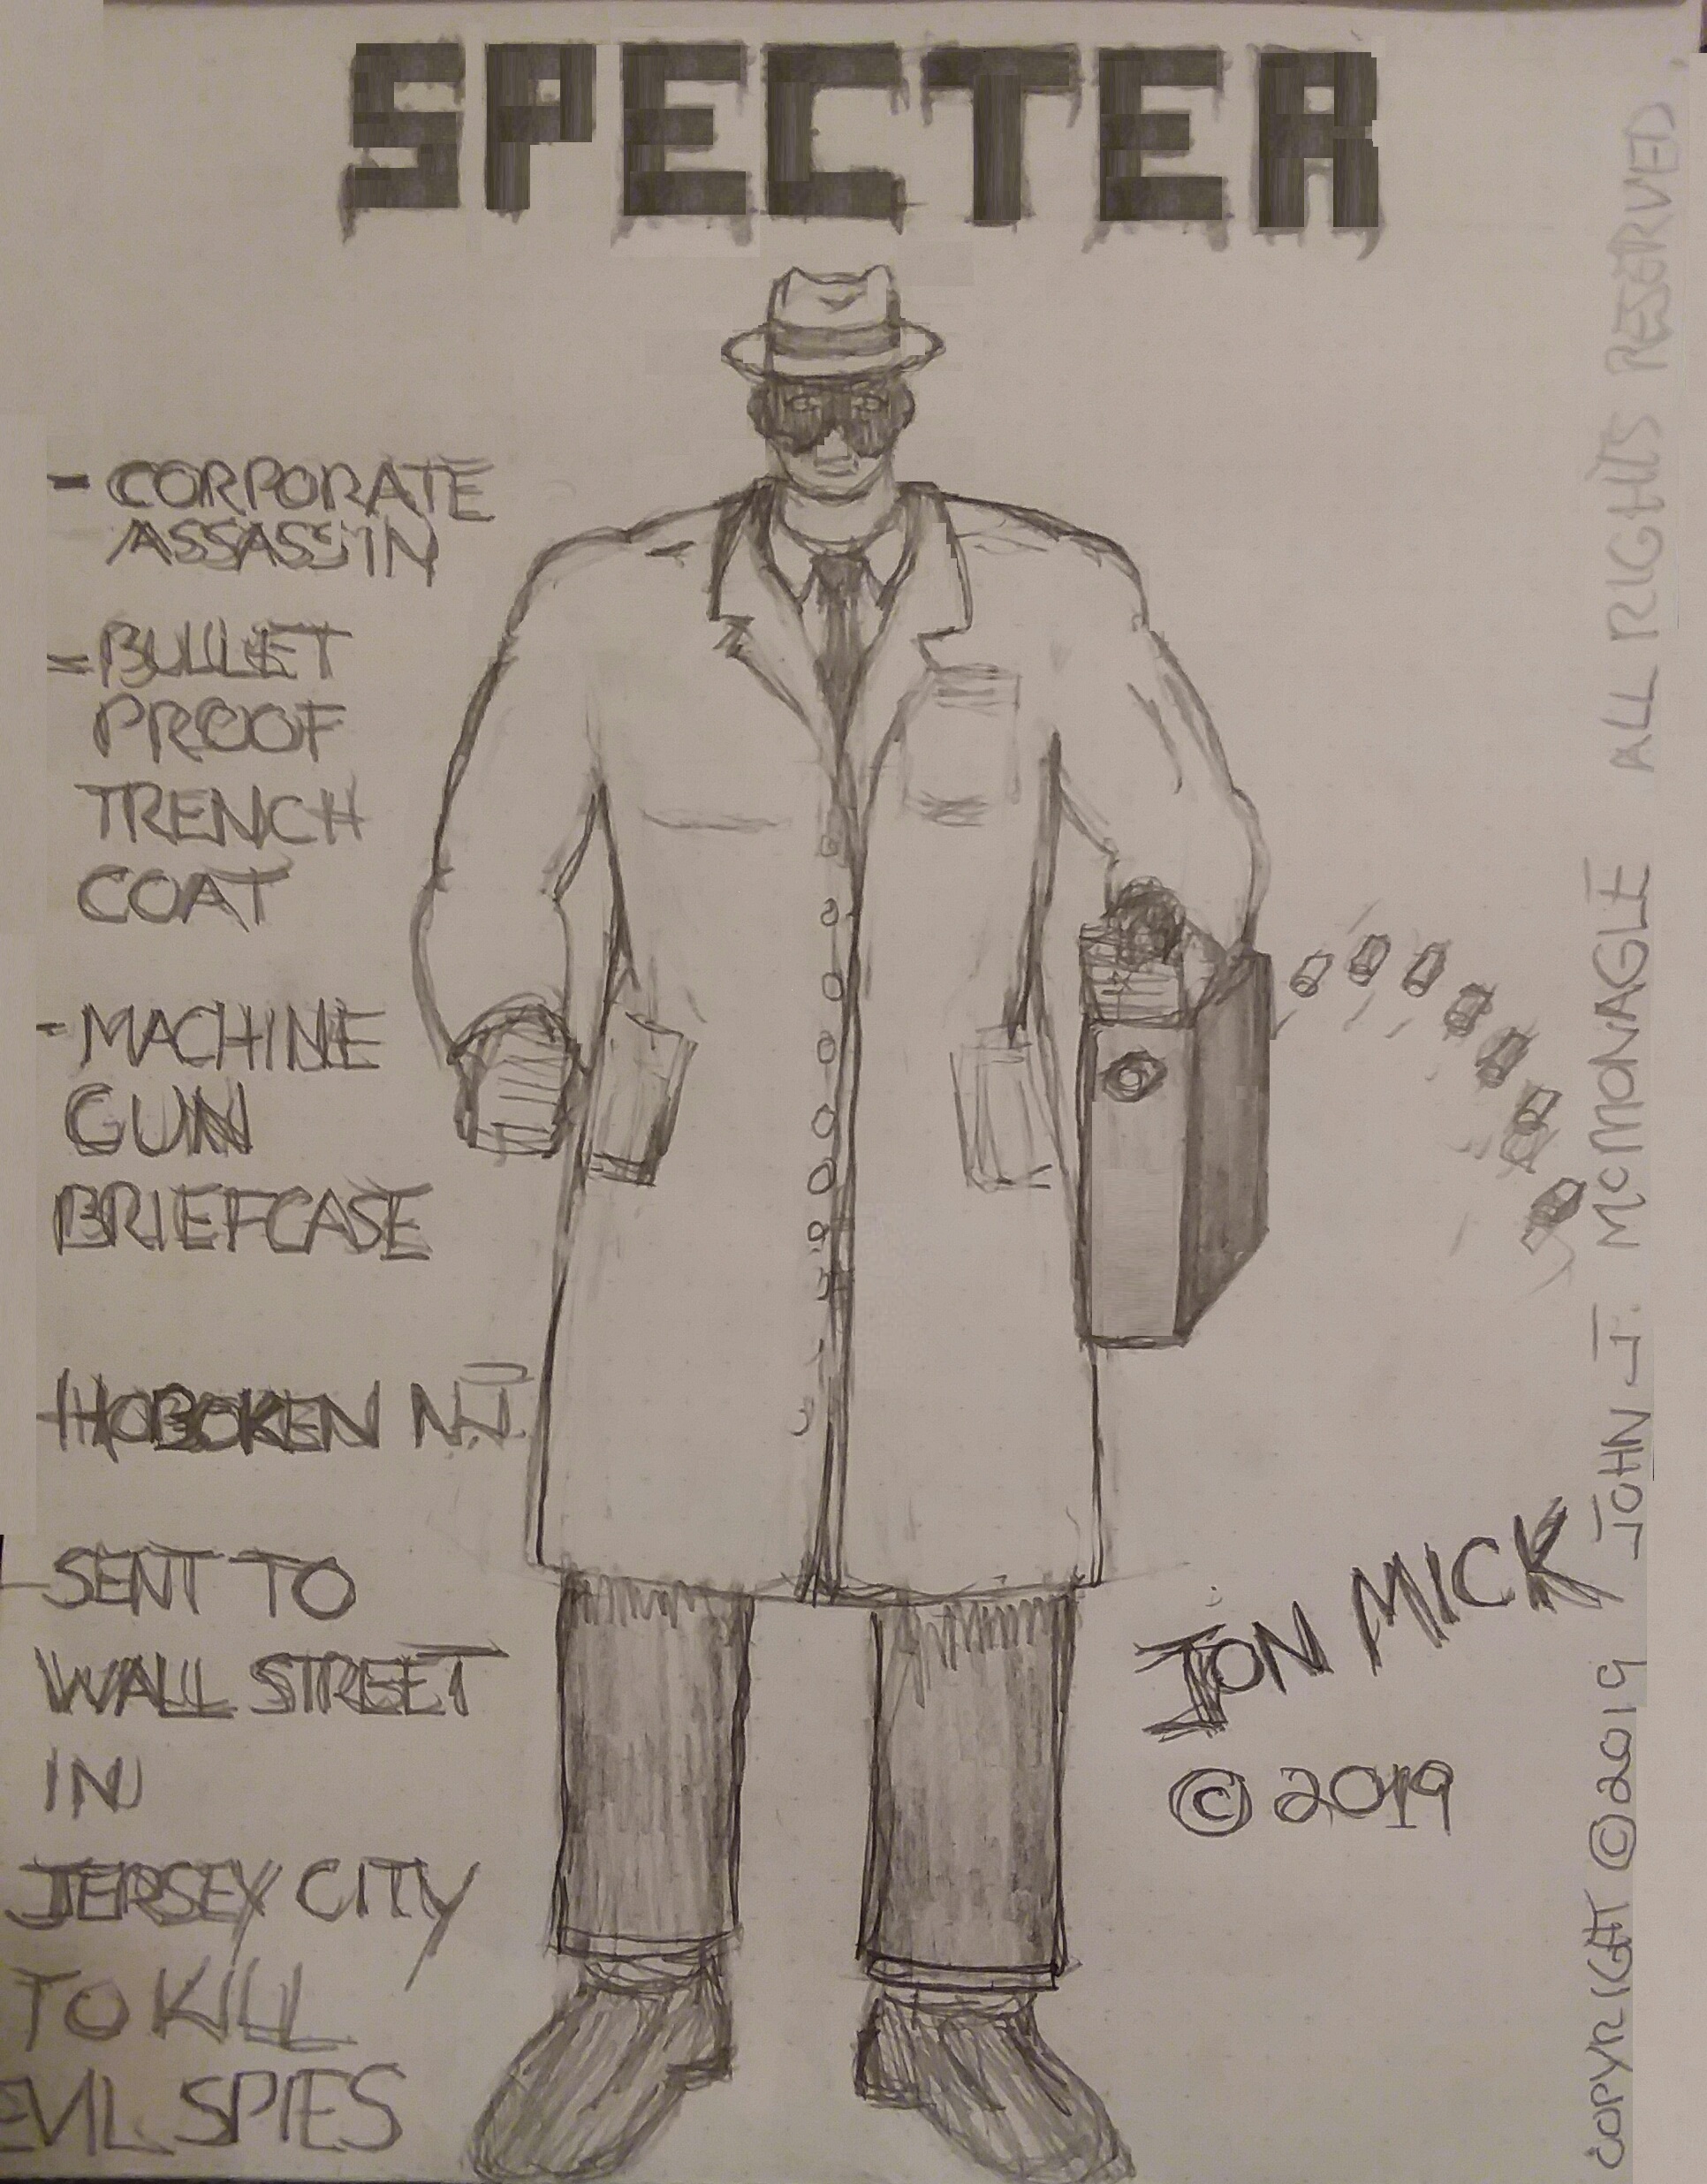 SPECTER
- CORPORATE
ASSASSIN
- BULLET
PROOF
TRENCH
COAT
- MACHINE
GUN
BRIEFCASE
- HOBOKEN N.J.
- SENT TO
WALL STREET
IN
JERSEY CITY
TO KILL
EVIL SPIES
JON MICK
© 2019
COPYRIGHT © 2019 JOHN J. MCMONAGLE ALL RIGHTS RESERVED